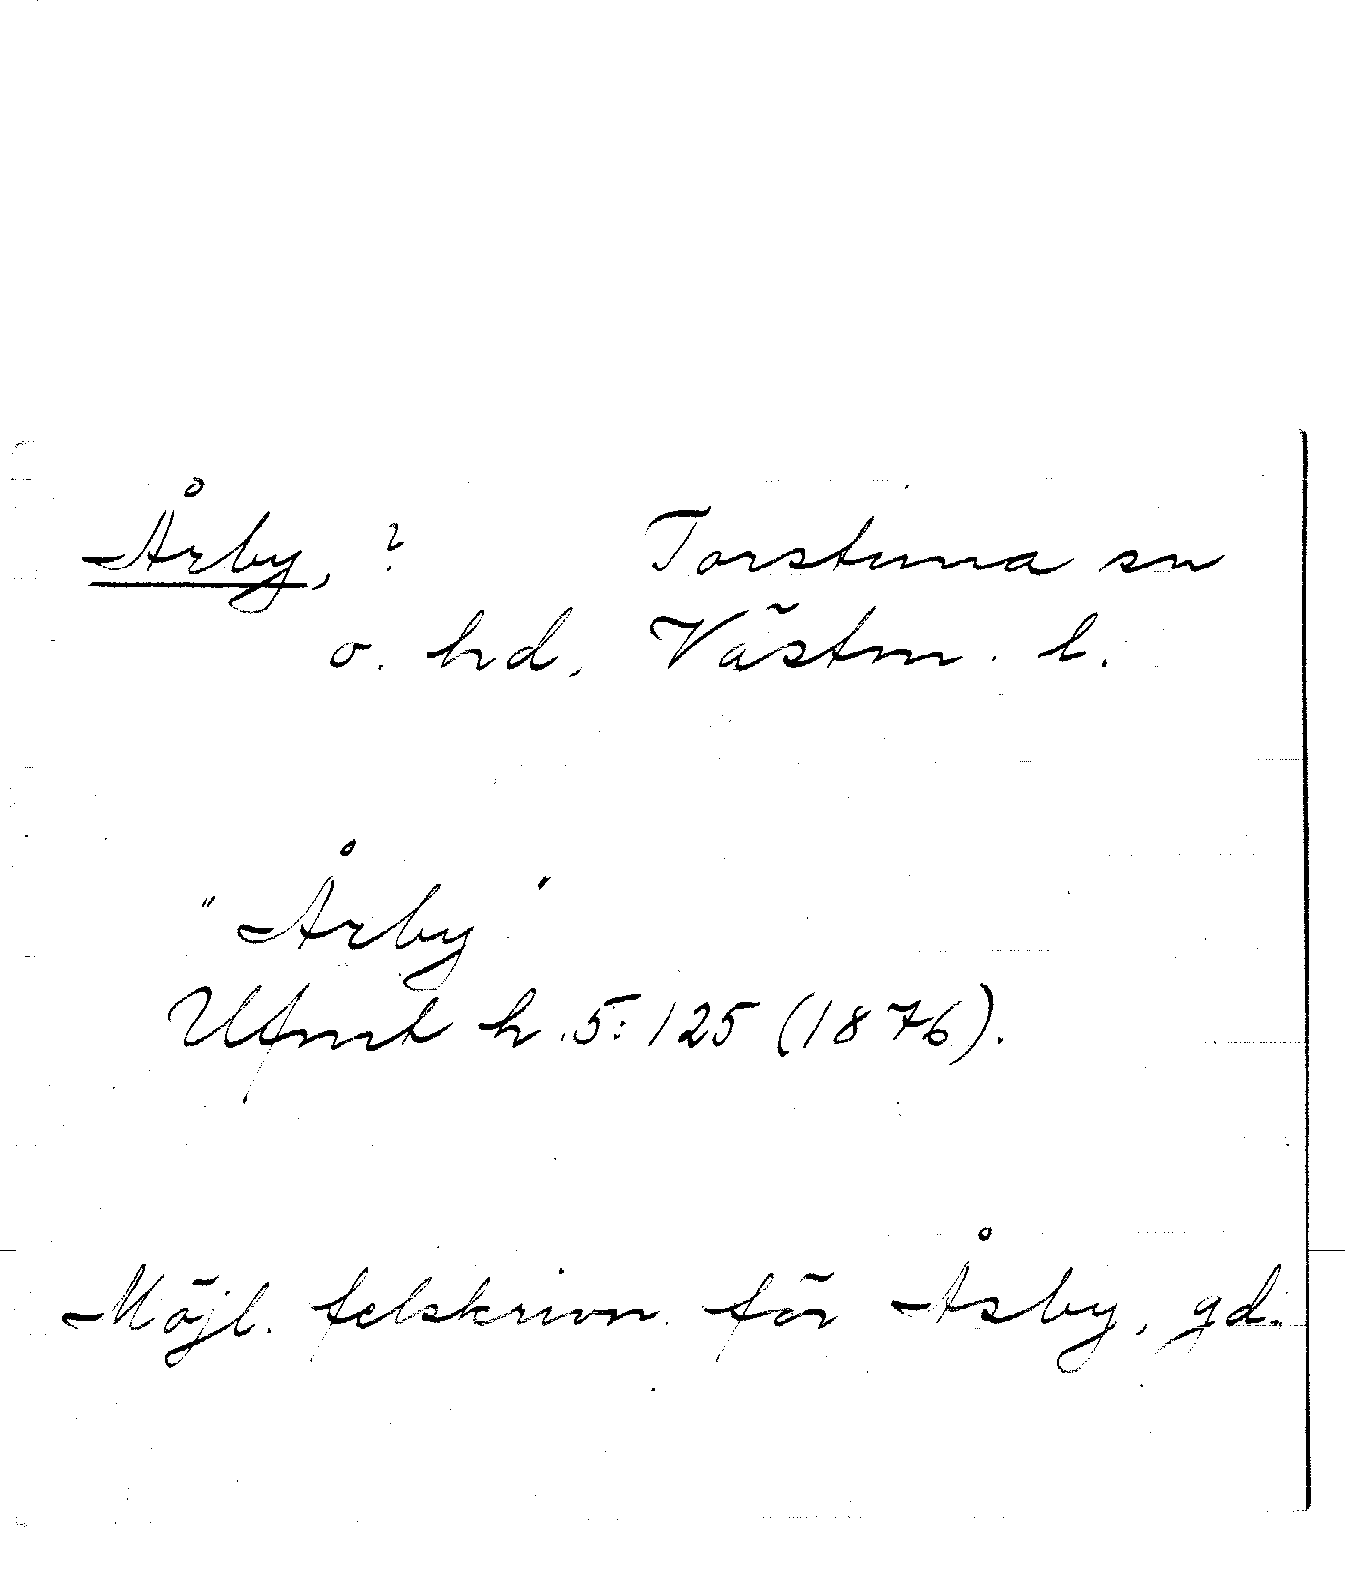 Årby, ? Torstuna sn
o. hd, Västm. l.
"Årby"
Ufmt h. 5: 125 (1876).
Möjl. felskrivn. för Åsby, gd.